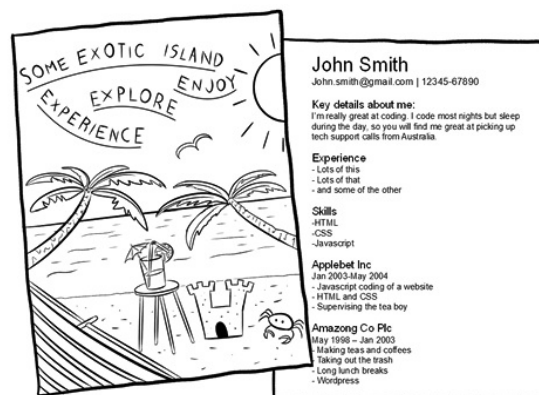 SOME EXOTIC ISLAND
EXPLORE
ENJOY
EXPERIENCE
John Smith
John.smith@gmail.com | 12345-67890
Key details about me:
I'm really great at coding. I code most nights but sleep
during the day, so you will find me great at picking up
tech support calls from Australia.
Experience
- Lots of this
- Lots of that
- and some of the other
Skills
-HTML
-CSS
-Javascript
Applebet Inc
Jan 2003-May 2004
- Javascript coding of a website
- HTML and CSS
- Supervising the tea boy
Amazong Co Plc
May 1998 – Jan 2003
- Making teas and coffees
- Taking out the trash
- Long lunch breaks
- Wordpress